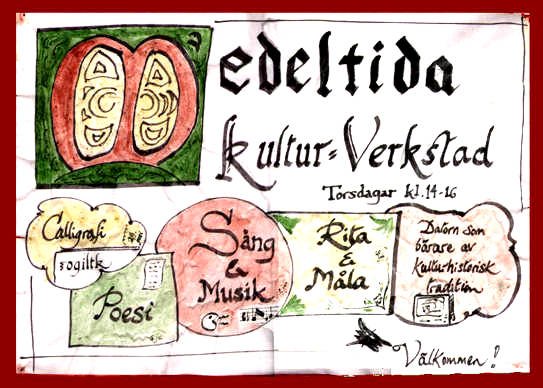 Medeltida
Kultur=Verkstad
Torsdagar kl.14-16
Calligrafi
ogiltk
Poesi
Sång
&
Musik
Rita
&
Måla
Datorn som
bärare av
kultur-historisk
tradition
Välkommen!